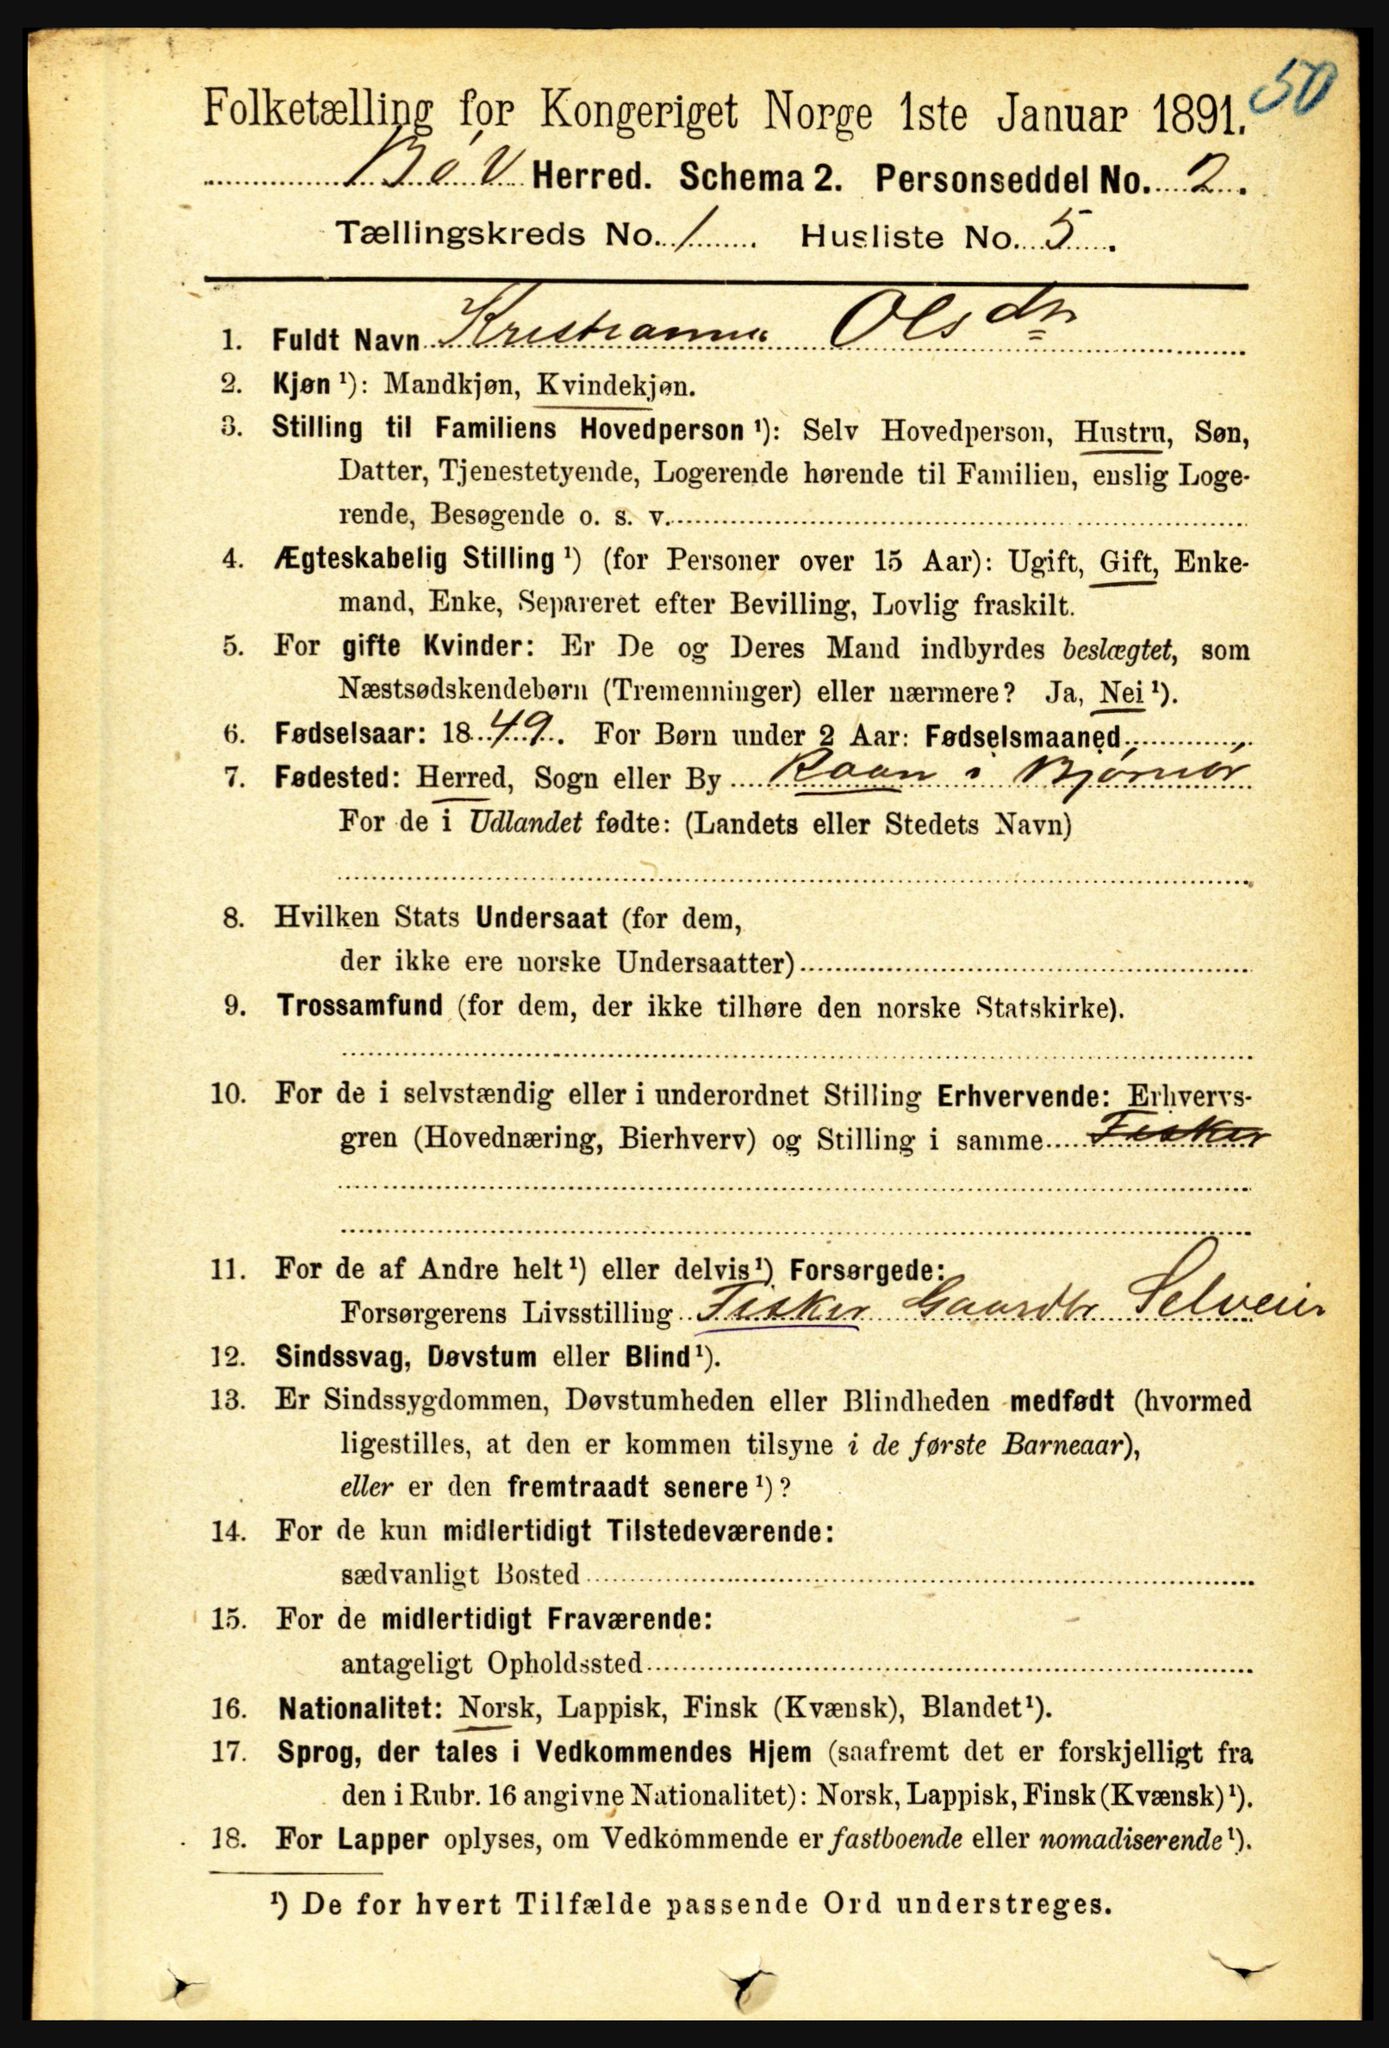 50
Folketælling for Kongeriget Norge 1ste Januar 1891.
Bø V Herred. Schema 2. Personseddel No. 2.
Tællingskreds No. 1. Husliste No. 5.
1. Fuldt Navn Olsdtr
2. Kjøn ¹): Mandkjøn, Kvindekjøn.
3. Stilling til Familiens Hovedperson ¹): Selv Hovedperson, Hustru, Søn,
Datter, Tjenestetyende, Logerende hørende til Familien, enslig Loge-
rende, Besøgende o. s. v.
4. Ægteskabelig Stilling ¹) (for Personer over 15 Aar): Ugift, Gift, Enke-
mand, Enke, Separeret efter Bevilling, Lovlig fraskilt.
5. For gifte Kvinder: Er De og Deres Mand indbyrdes beslægtet, som
Næstsødskendebørn (Tremenninger) eller nærmere? Ja, Nei ¹).
6. Fødselsaar: 1849. For Børn under 2 Aar: Fødselsmaaned
7. Fødested: Herred, Sogn eller By Roan i Bjørnør
For de i Udlandet fødte: (Landets eller Stedets Navn)
8. Hvilken Stats Undersaat (for dem,
der ikke ere norske Undersaatter)
9. Trossamfund (for dem, der ikke tilhøre den norske Statskirke).
10. For de i selvstændig eller i underordnet Stilling Erhvervende: Erhvervs-
gren (Hovednæring, Bierhverv) og Stilling i samme Fisker
11. For de af Andre helt ¹) eller delvis ¹) Forsørgede:
Forsørgerens Livsstilling Fisker Gaardbr Selveier
12. Sindssvag, Døvstum eller Blind ¹).
13. Er Sindssygdommen, Døvstumheden eller Blindheden medfødt (hvormed
ligestilles, at den er kommen tilsyne i de første Barneaar),
eller er den fremtraadt senere ¹)?
14. For de kun midlertidigt Tilstedeværende:
sædvanligt Bosted
15. For de midlertidigt Fraværende:
antageligt Opholdssted
16. Nationalitet: Norsk, Lappisk, Finsk (Kvænsk), Blandet ¹).
17. Sprog, der tales i Vedkommendes Hjem (saafremt det er forskjelligt fra
den i Rubr. 16 angivne Nationalitet): Norsk, Lappisk, Finsk (Kvænsk) ¹).
18. For Lapper oplyses, om Vedkommende er fastboende eller nomadiserende ¹).
¹) De for hvert Tilfælde passende Ord understreges.